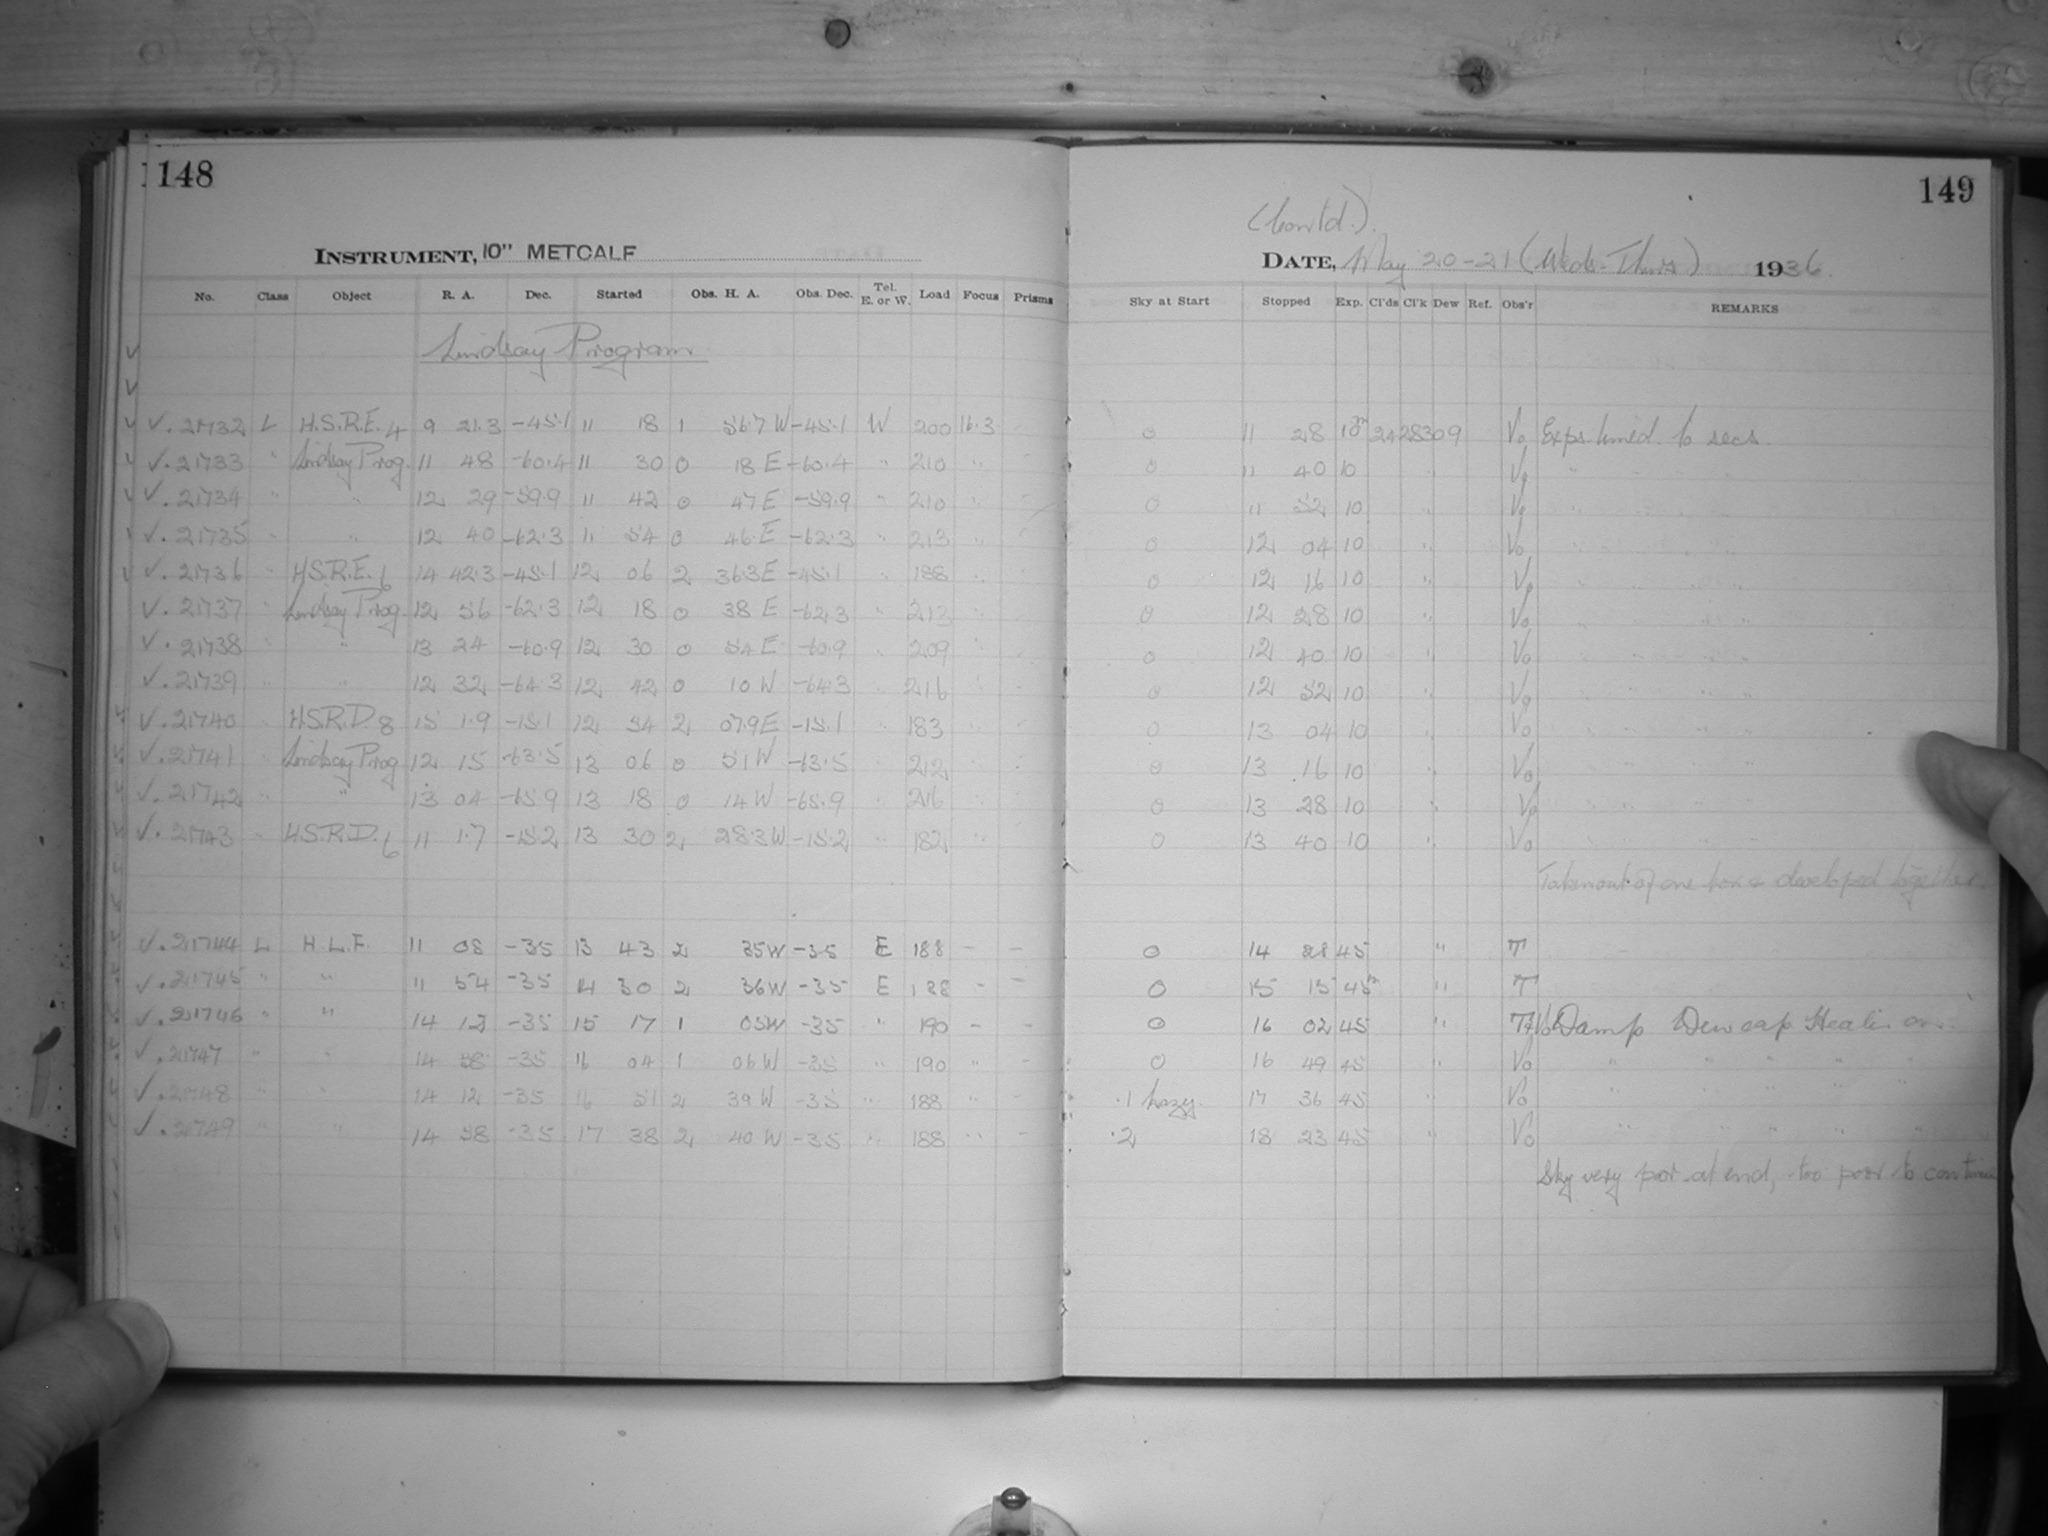 148
INSTRUMENT, 10" METCALF
No. Class Object R. A. Dec. Started Obs. H. A. Obs. Dec. Tel. E. or W. Load Focus Prisms
Lindsay Program
✓. 21732 L H.S.R.E. 4 9 21.3 -45.1 11 18 1 56.7 W -45.1 W 200 16.3
✓. 21733 " Lindsay Prog. 11 48 -60.4 11 30 0 18 E -60.4 " 210 "
✓. 21734 " " 12 29 -59.9 11 42 0 47 E -59.9 " 210 "
✓. 21735 " " 12 40 -62.3 11 54 0 46 E -62.3 " 213 "
✓. 21736 " H.S.R.E. 6 14 42.3 -45.1 12 06 2 36.3 E -45.1 " 188 "
✓. 21737 " Lindsay Prog. 12 56 -62.3 12 18 0 38 E -62.3 " 213 "
✓. 21738 " 13 24 -60.9 12 30 0 54 E -60.9 " 209 "
✓. 21739 " " 12 32 -64.3 12 42 0 10 W -64.3 " 216 "
✓. 21740 " H.S.R.D. 8 15 1.9 -15.1 12 54 2 07.9 E -15.1 " 183 "
✓. 21741 " Lindsay Prog 12 15 -63.5 13 06 0 51 W -63.5 " 212 "
✓. 21742 " " 13 04 -65.9 13 18 0 14 W -65.9 " 216 "
✓. 21743 " H.S.R.D. 6 11 1.7 -15.2 13 30 2 28.3 W -15.2 " 182 "
✓. 21744 L H.L.F. 11 08 -35 13 43 2 35 W -35 E 188 - -
✓. 21745 " " 11 54 -35 14 30 2 36 W -35 E 188 - -
✓. 21746 " " 14 12 -35 15 17 1 05 W -35 " 190 - -
✓. 21747 " " 14 58 -35 16 04 1 06 W -35 " 190 " -
✓. 21748 " " 14 12 -35 16 51 2 39 W -35 " 188 " -
✓. 21749 " " 14 58 -35 17 38 2 40 W -35 " 188 " -
149
(Contd.).
DATE, May 20-21 (Wed.-Thurs) 1936.
Sky at Start Stopped Exp. Cl'ds Cl'k Dew Ref. Obs'r REMARKS
0 11 28 10m Vo Exps. timed to secs.
0 11 40 10 " Vo " " " "
0 11 52 10 " Vo " " " "
0 12 04 10 " Vo " " " "
0 12 16 10 " Vo " " " "
0 12 28 10 " Vo " " " "
0 12 40 10 " Vo " " " "
0 12 52 10 " Vo " " " "
0 13 04 10 " Vo " " " "
0 13 16 10 " Vo " " " "
0 13 28 10 " Vo " " " "
0 13 40 10 " Vo " " " "
Taken out of one box & developed together.
0 14 28 45 " T
0 15 15 45m " T
0 16 02 45 " T/Vo Damp Dewcap Heater on.
0 16 49 45 " Vo " " " "
.1 hazy. 17 36 45 " Vo " " " "
.2 18 23 45 " Vo " " " "
Sky very poor at end, too poor to continue